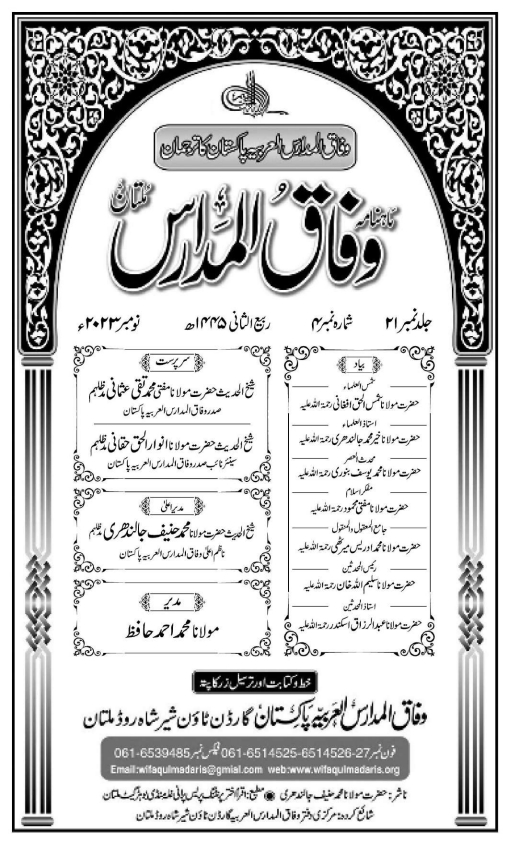 وفاق المدارس العربیہ پاکستان کا ترجمان
ماہنامہ
وفاق المدارس
ملتان
جلد نمبر ۲۱ شمارہ نمبر ۴ ربیع الثانی ۱۴۴۵ھ نومبر ۲۰۲۳ء
بیاد
شمس العلماء
حضرت مولانا شمس الحق افغانی رحمۃ اللہ علیہ
استاذ العلماء
حضرت مولانا خیر محمد جالندھری رحمۃ اللہ علیہ
محدث العصر
حضرت مولانا محمد یوسف بنوری رحمۃ اللہ علیہ
مفکر اسلام
حضرت مولانا مفتی محمود رحمۃ اللہ علیہ
جامع المعقول والمنقول
حضرت مولانا محمد ادریس میرٹھی رحمۃ اللہ علیہ
رئیس المحدثین
حضرت مولانا سلیم اللہ خان رحمۃ اللہ علیہ
استاذ المحدثین
حضرت مولانا عبدالرزاق اسکندر رحمۃ اللہ علیہ
سرپرست
شیخ الحدیث حضرت مولانا مفتی محمد تقی عثمانی مدظلہم
صدر وفاق المدارس العربیہ پاکستان
شیخ الحدیث حضرت مولانا انوار الحق حقانی مدظلہم
سینئر نائب صدر وفاق المدارس العربیہ پاکستان
مدیر اعلیٰ
شیخ الحدیث حضرت مولانا محمد حنیف جالندھری مدظلہم
ناظم اعلیٰ وفاق المدارس العربیہ پاکستان
مدیر
مولانا محمد احمد حافظ
خط و کتابت اور ترسیل زر کا پتہ
وفاق المدارس العربیہ پاکستان گارڈن ٹاؤن شیر شاہ روڈ ملتان
فون نمبر 061-6514525-6514526-27 فیکس نمبر 061-6539485
Email:wifaqulmadaris@gmial.com web:www.wifaqulmadaris.org
ناشر: حضرت مولانا محمد حنیف جالندھری مطبع: اقرأ اختر پرنٹنگ پریس پرانی غلہ منڈی بوہڑ گیٹ ملتان
شائع کردہ: مرکزی دفتر وفاق المدارس العربیہ گارڈن ٹاؤن شیر شاہ روڈ ملتان